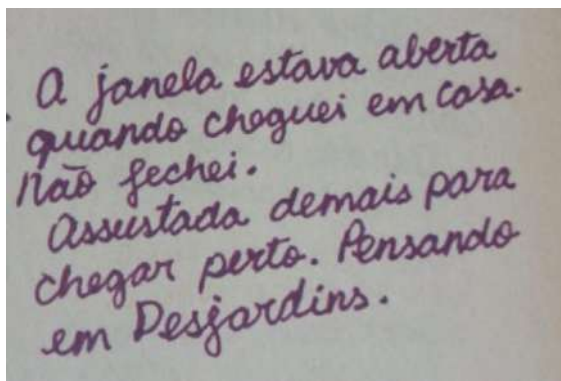 A janela estava aberta
quando cheguei em casa.
Não fechei.
Assustada demais para
chegar perto. Pensando
em Desjardins.